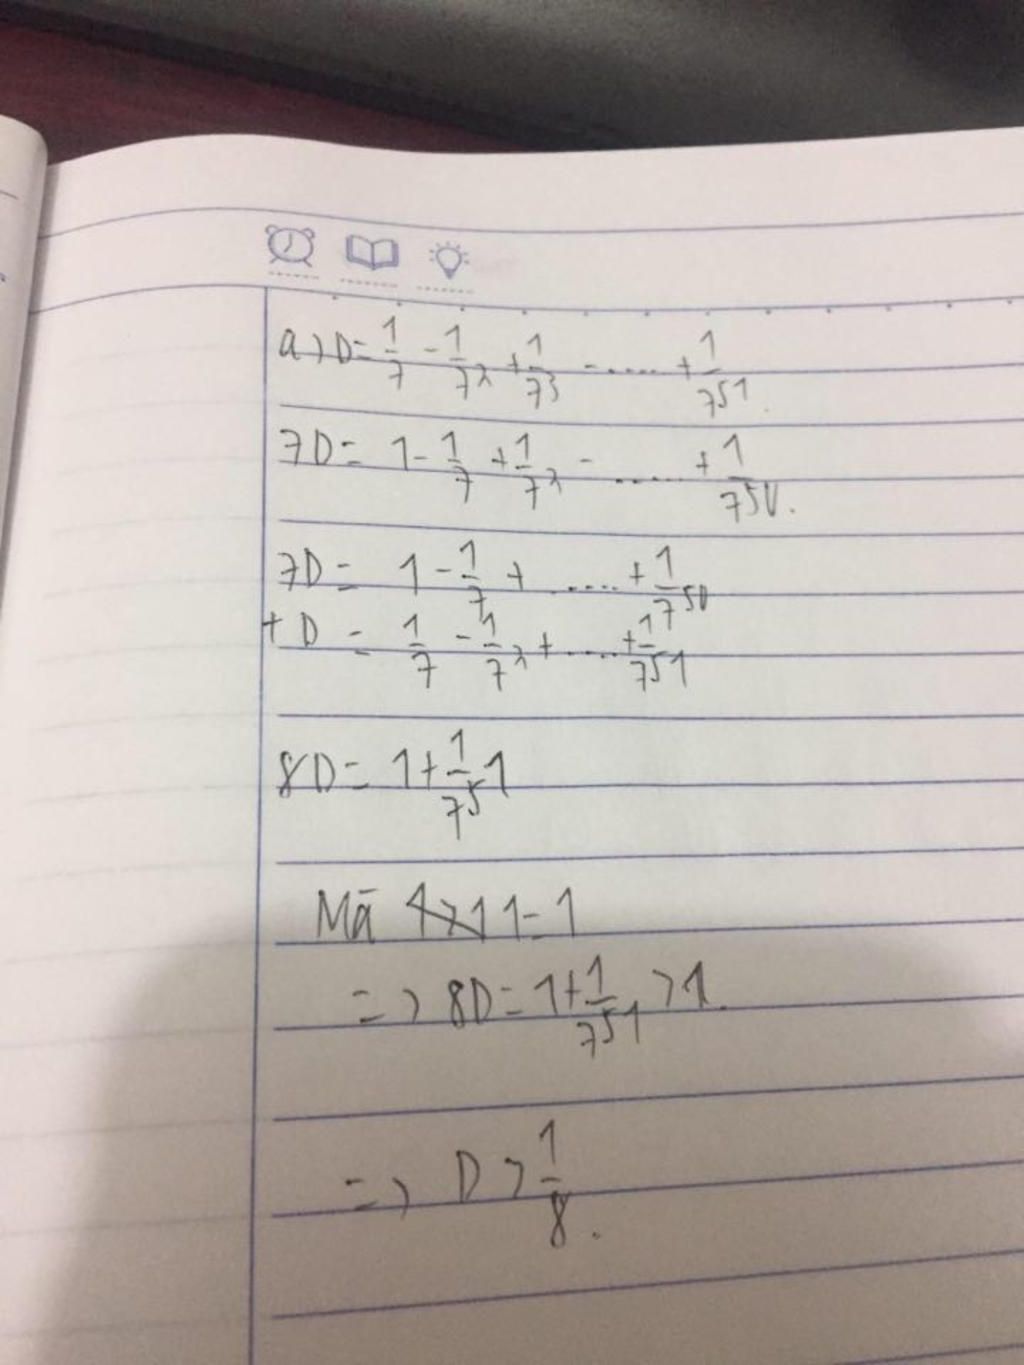 a) D = 1/7 - 1/7² + 1/7³ - ..... + 1/7⁵¹.
7D = 1 - 1/7 + 1/7² - ..... + 1/7⁵⁰.
7D = 1 - 1/7 + ..... + 1/7⁵⁰
+ D = 1/7 - 1/7² + ..... + 1/7⁵¹
8D = 1 + 1/7⁵¹
Mà
=> 8D = 1 + 1/7⁵¹ > 1.
=> D > 1/8.